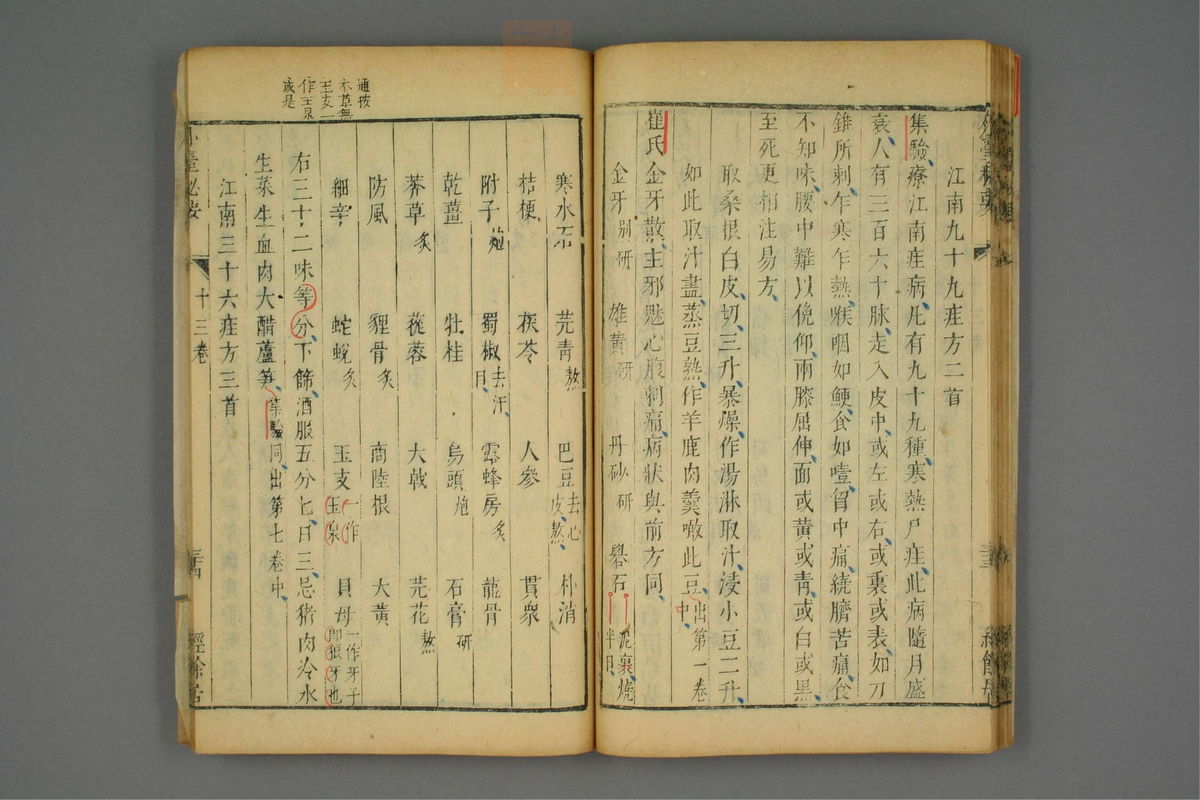 江南九十九疰方二首
集驗療江南疰病凡有九十九種寒熱尸疰此病隨月盛
衰人有三百六十脉走入皮中或左或右或裏或表如刀
錐所刺乍寒乍熱喉咽如鯁食如噎胷中痛繞臍苦痛食
不知味腰中難以俛仰兩膝屈伸面或黄或青或白或黒
至死更相注易方
取桑根白皮切三升暴燥作湯淋取汁浸小豆二升
如此取汁盡蒸豆熟作羊鹿肉羮噉此豆出第一卷中
崔氏金牙散主邪魅心腹刺痛病狀與前方同
金牙别研 雄黄研 丹砂研 礜石泥裹燒半日
寒水石 芫青熬 巴豆去心皮熬 朴消
桔梗 茯苓 人參 貫衆
附子炮 蜀椒去汗目 露蜂房炙 龍骨
乾薑 牡桂 烏頭炮 石膏研
莾草炙 蓯蓉 大戟 芫花熬
防風 貍骨炙 商陸根 大黄
細辛 蛇蛻炙 玉支一作玉泉 貝母一作牙子即狼牙也
右三十二味等分下篩酒服五分匕日三忌猪肉冷水
生菜生血肉大醋蘆笋集驗同出第七卷中
江南三十六疰方三首
通按
本草無
玉支一
作玉泉
或是
外臺秘要
十三卷
三十四
經餘居